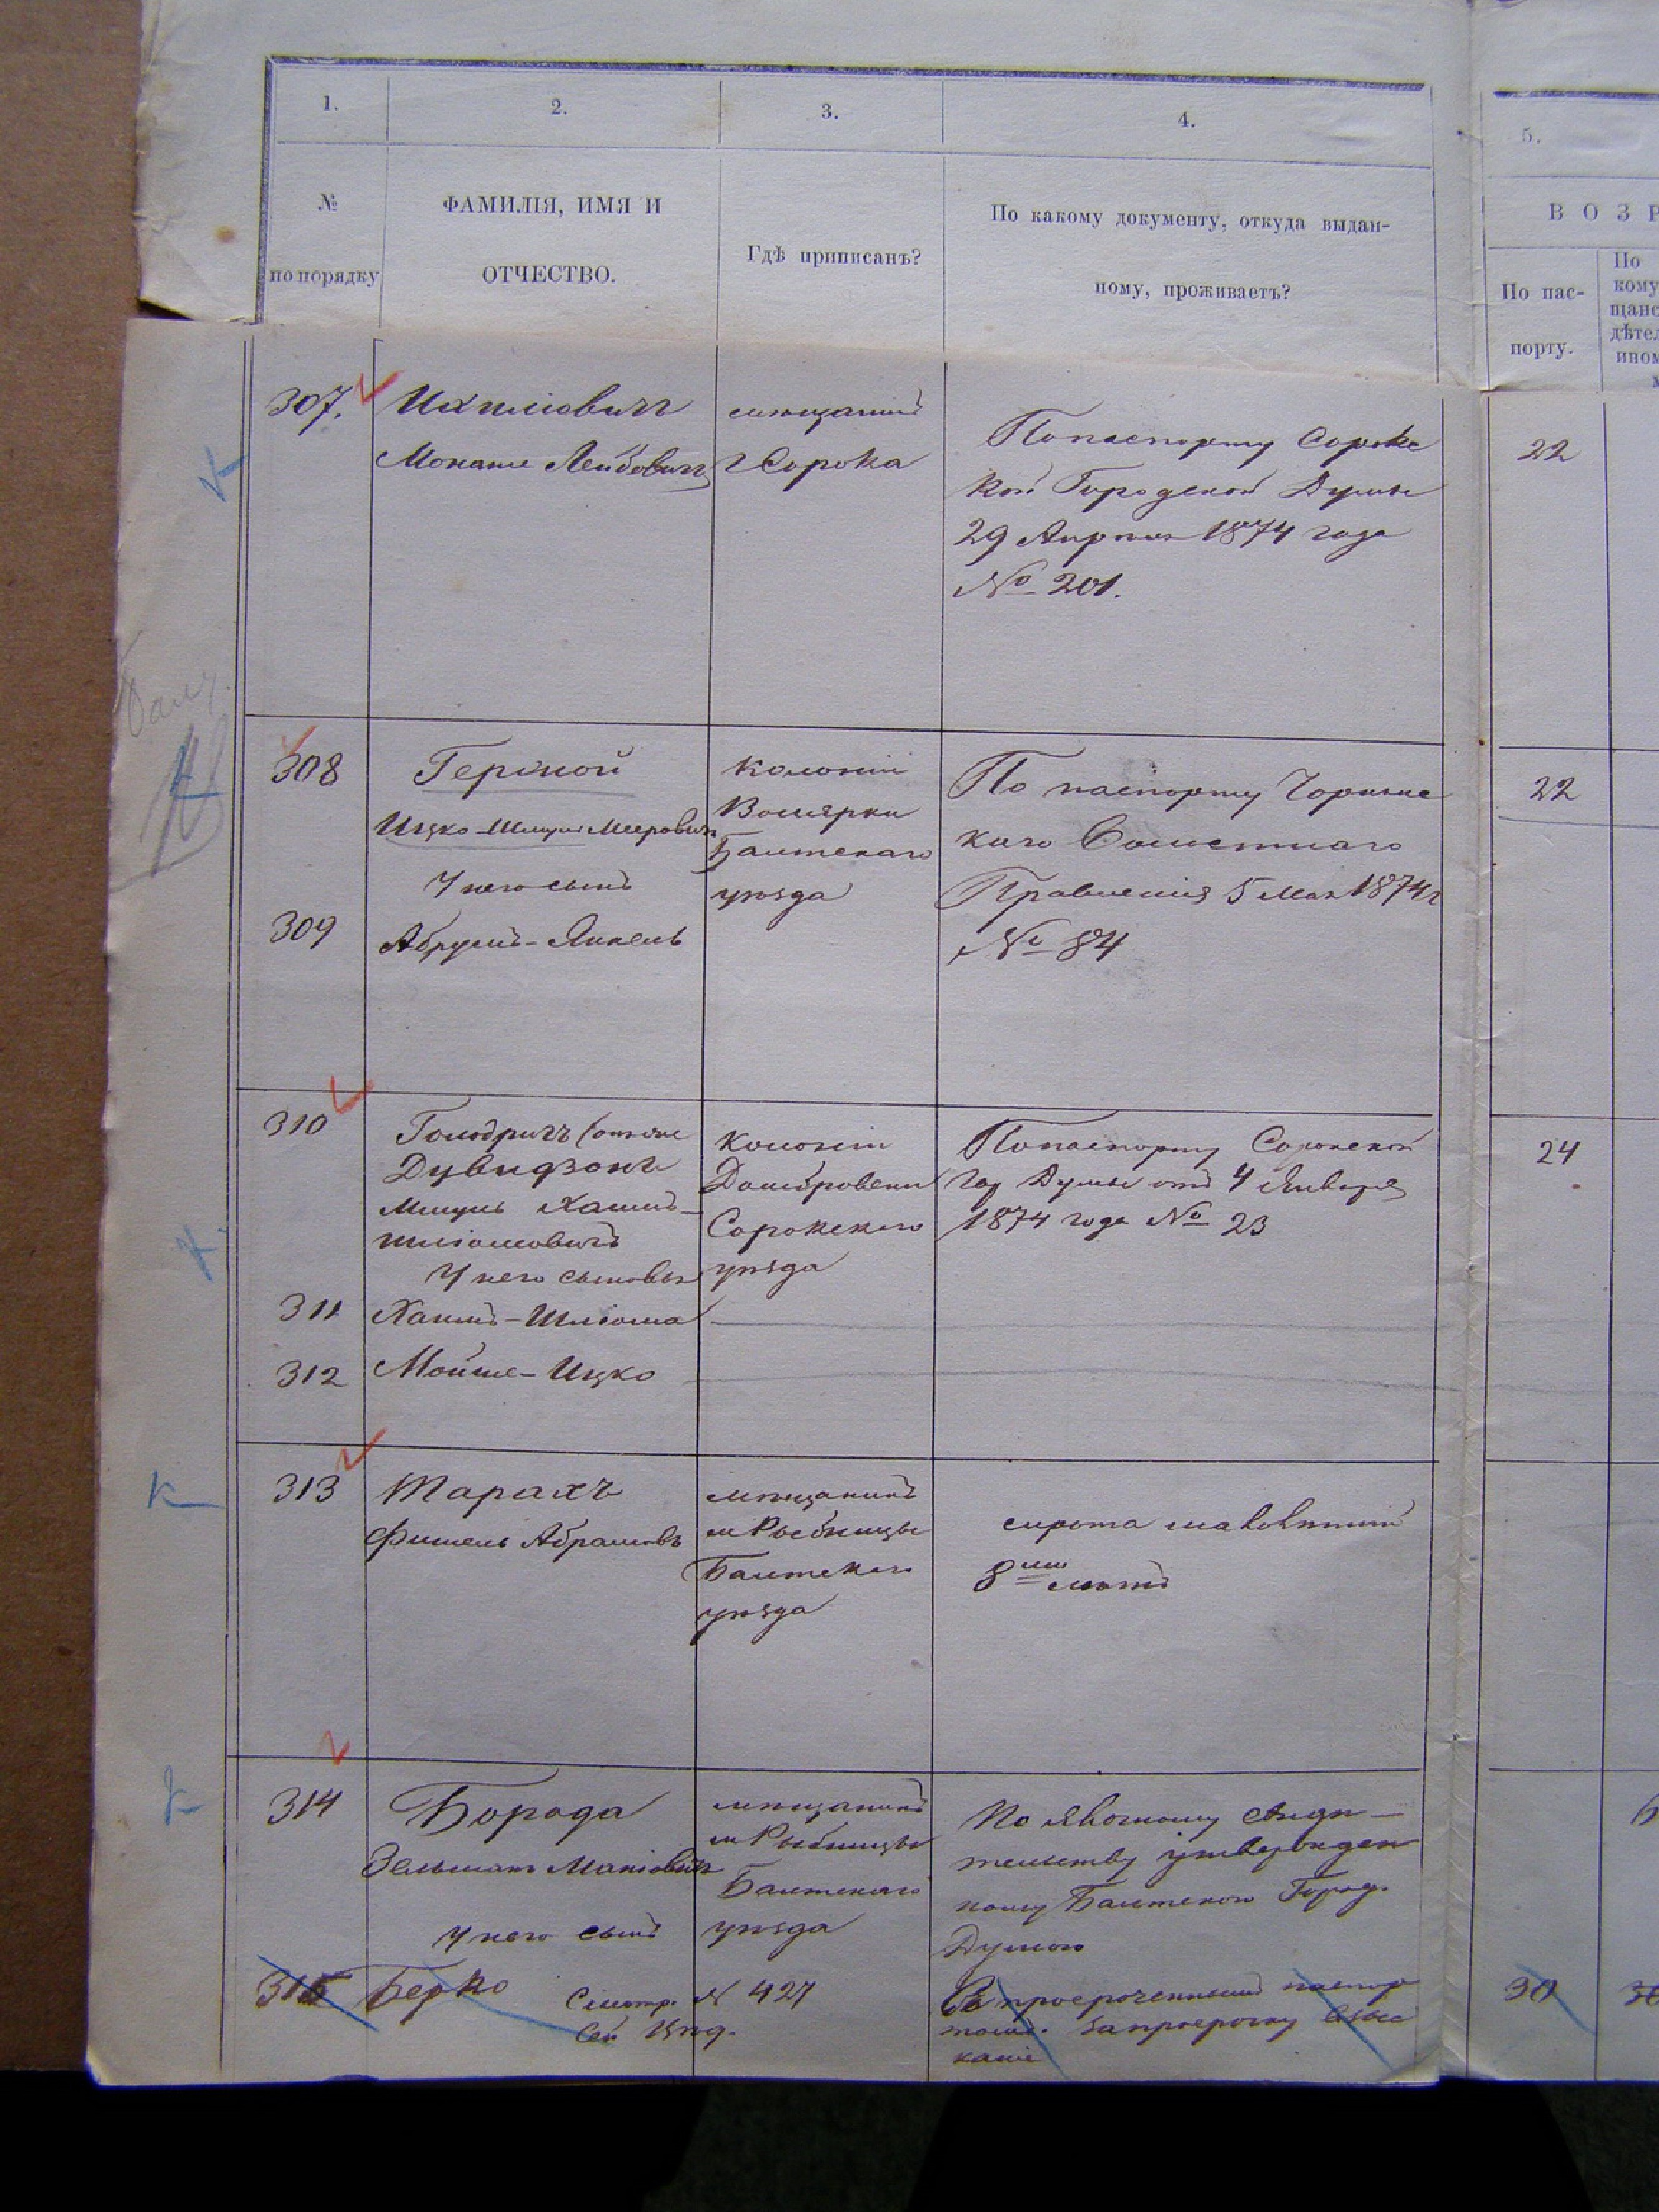 1.
2.
3.
4.
5.
№
по порядку
ФАМИЛІЯ, ИМЯ И
ОТЧЕСТВО.
Гдѣ приписанъ?
По какому документу, откуда выдан-
ному, проживаетъ?
ВОЗР
По пас-
порту.
По
кому
щанс
дѣтел
ином
307.
Ихиліовичъ
Монаше Лейбовичъ
мѣщанинъ
г Сорока
По паспорту Сорокс
кой Городской Думы
29 Апрѣля 1874 года
№ 201.
22
308
Гершкой
Ицко-Шмуль Мееровичъ
У него сынъ
309
Абрумъ-Янкель
Колоніи
Балтскаго
уѣзда
По паспорту
каго Волостнаго
Правленія 5 Мая 1874 г
№ 84
22
310
Голодригъ (онъ же
Дувидзонъ
Шмуль Хаимъ-
Шліомовичъ
У него сыновья
311
Хаимъ-Шліома
312
Мойше-Ицко
Колоніи
Домбровени
Сорокскаго
уѣзда
По паспорту Сорокской
Гор Думы отъ 4 Января
1874 года № 23
24
313
Тарахъ
Фишель Абрамовъ
мѣщанинъ
м Рыбницы
Балтскаго
уѣзда
сирота малолѣтній
8ми лѣтъ
314
Борода
Зельманъ Маніовичъ
У него сынъ
315
Берко
Смотр. № 427
мѣщанинъ
м Рыбницы
Балтскаго
уѣзда
По явочному свидѣ-
тельству утвержден
ному Балтскою Город.
Думою
Съ просроченнымъ паспор
томъ. За просрочку взыс
каніе
30